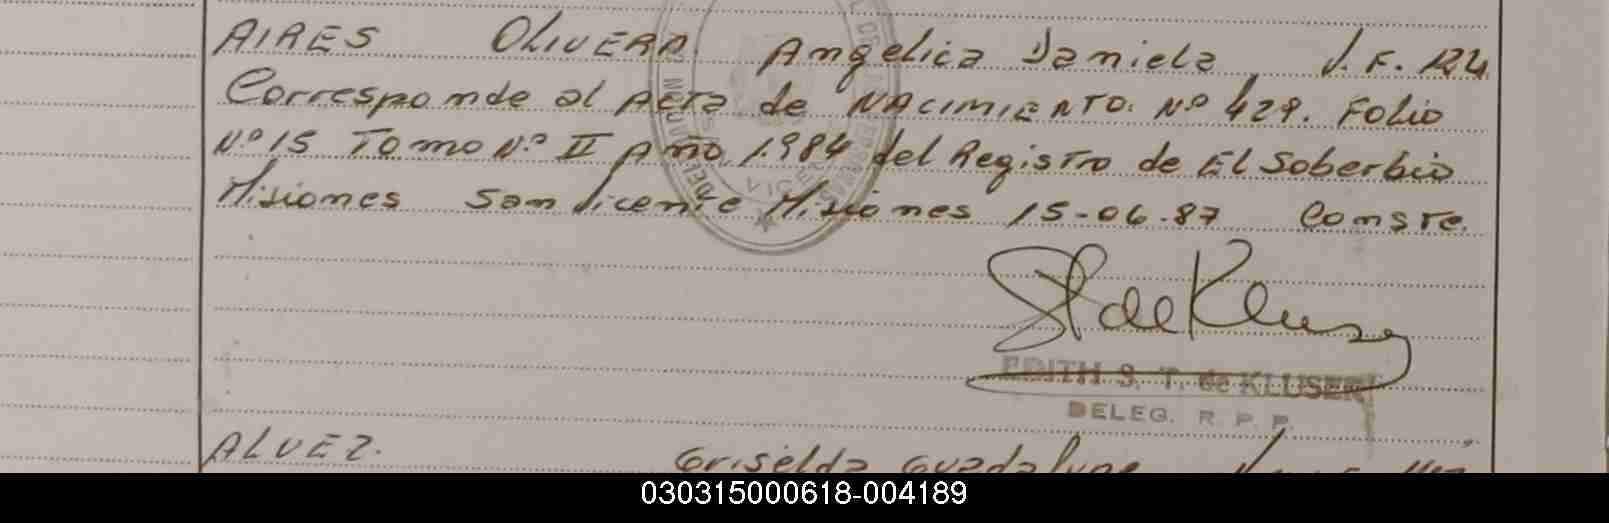 AIRES OLIVERA Angelica Daniela J.F. R4
Corresponde al Acta de NACIMIENTO. Nº 429. Folio
Nº 15 Tomo Nº II Año 1.984 del Registro de El Soberbio
Misiones San Vicente Misiones 15-06-87 Conste.
EDITH S. T. de KLUSER
DELEG. R. P. P.
ALVEZ. Griselda Guadalupe
030315000618-004189